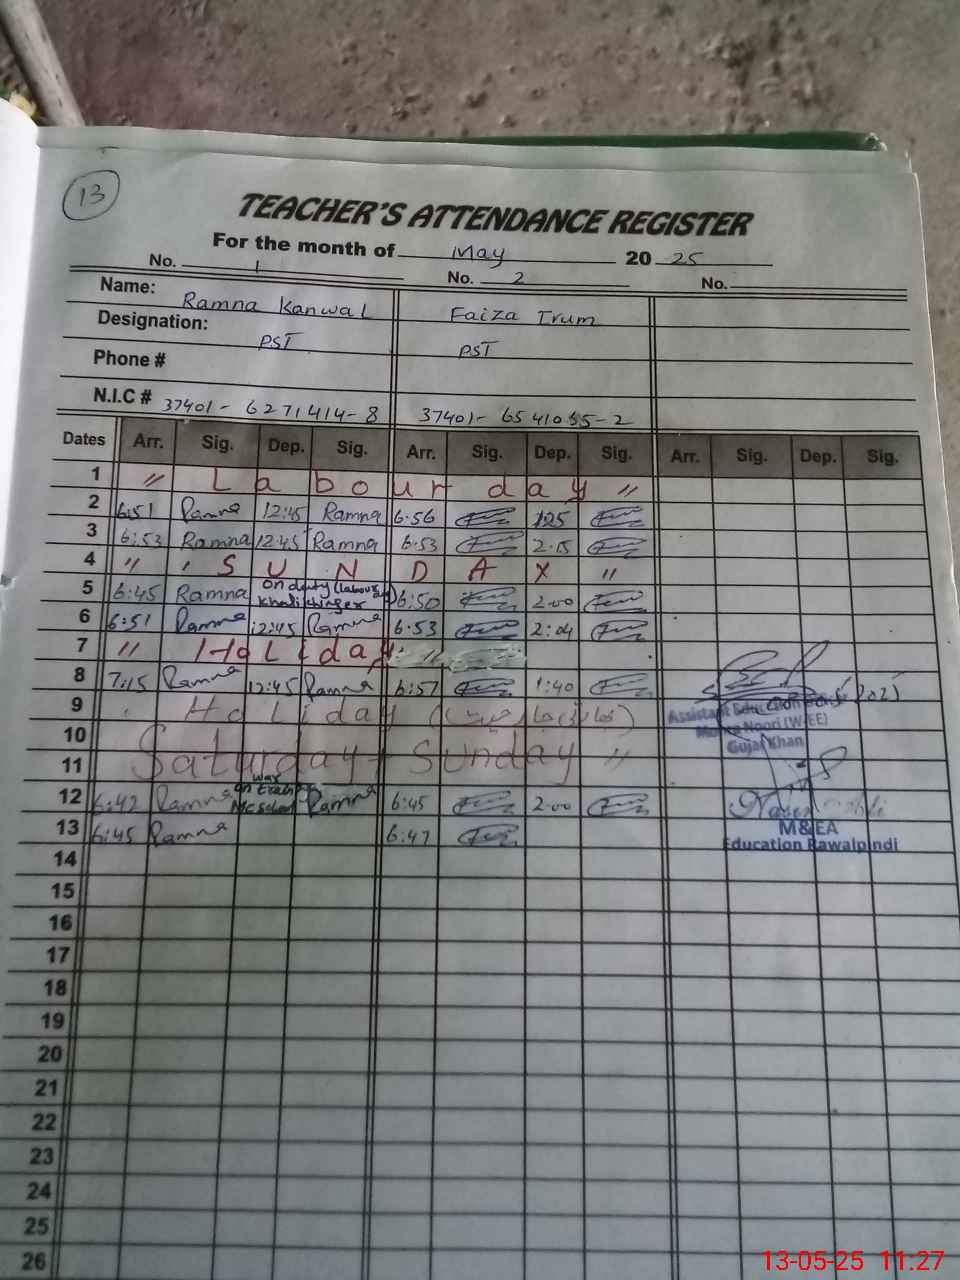 13
TEACHER'S ATTENDANCE REGISTER
For the month of May 20 25
No. 1 No. 2 No.
Name: Ramna Kanwal Faiza Irum
Designation: PST PST
Phone #
N.I.C # 37401-6271414-8 37401-6541055-2
Dates Arr. Sig. Dep. Sig. Arr. Sig. Dep. Sig. Arr. Sig. Dep. Sig.
1 " Labour day "
2 6:51 Ramna 12:45 Ramna 6.56 1:25
3 6:53 Ramna 12:45 Ramna 6.53 2.15
4 " SUNDAY "
5 6:45 Ramna on duty (labour 6:50 2.00
6 6:51 Ramna 12:45 Ramna 6.53 2:04
7 " Holiday "
8 7:15 Ramna 12:45 Ramna 6:57 1:40
9 Holiday
10 Saturday + Sunday "
11
12 6:42 Ramna was on Ramna 6:45 2.00
13 6:45 Ramna 6:47
Assistant Education
Mohra Noori (W-EE)
Gujar Khan
M&EA
Education Rawalpindi
14
15
16
17
18
19
20
21
22
23
24
25
26
13-05-25 11:27